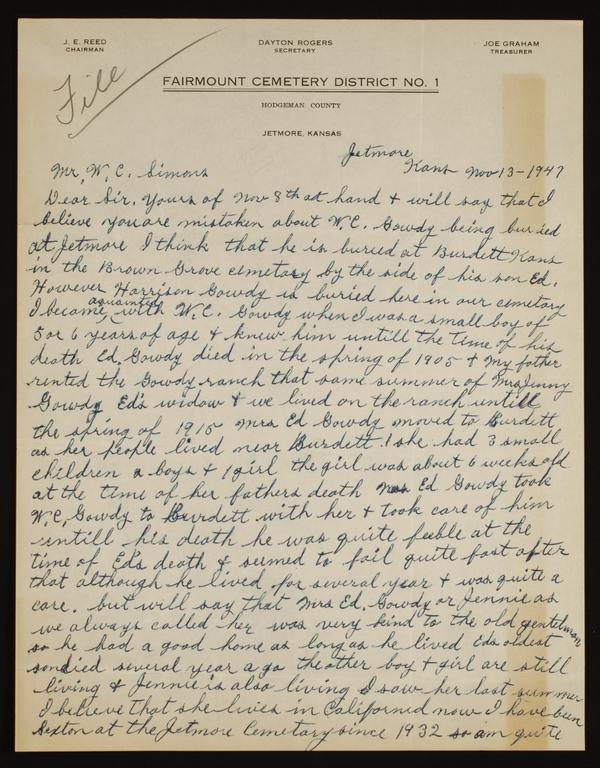 J. E. REED
CHAIRMAN
DAYTON ROGERS
SECRETARY
JOE GRAHAM
TREASURER
File
FAIRMOUNT CEMETERY DISTRICT NO. 1
HODGEMAN COUNTY
JETMORE, KANSAS
Jetmore
Kans Nov 13-1947
Mr, W. C. Simons
Dear Sir. Yours of Nov 8th at hand & will say that I
believe you are mistaken about W.C. Gowdy being buried
at Jetmore I think that he is buried at Burdett Kans
in the Brown Grove cemetery by the side of his son Ed.
However Harrison Gowdy is buried here in our cemetery
I became aquainted with W.C. Gowdy when I was a small boy of
5 or 6 years of age & knew him untill the time of his
death Ed, Gowdy died in the spring of 1905 & my father
rented the Gowdy ranch that same summer of Mrs Jenny
Gowdy Ed's widow & we lived on the ranch untill
the spring of 1915 Mrs Ed Gowdy moved to Burdett
as her people lived near Burdett. she had 3 small
children 2 boys & 1 girl the girl was about 6 weeks old
at the time of her fathers death Mrs Ed Gowdy took
W.C, Gowdy to Burdett with her & took care of him
untill his death he was quite feeble at the
time of Ed's death & seemed to fail quite fast after
that although he lived for several year & was quite a
care. but will say that Mrs Ed. Gowdy or Jennie as
we always called her was very kind to the old gentelman
so he had a good home as long as he lived Eds oldest
son died several year ago the other boy & girl are still
living & Jennie is also living I saw her last summer
I believe that she lives in California now I have been
Sexton at the Jetmore Cemetary since 1932 so am quite